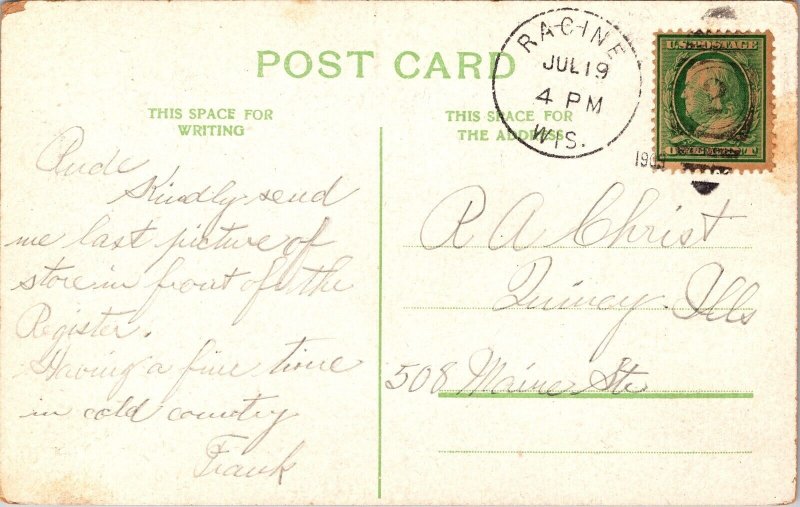 POST CARD
RACINE
JUL 19
4 PM
WIS.
1909
U.S. POSTAGE
2
THIS SPACE FOR
WRITING
THIS SPACE FOR
THE ADDRESS
Rude
Kindly send
me last picture of
store in front of the
Register.
Having a fine time
in cold country
Frank
R A Christ
Quincy Ills
508 Maine Str